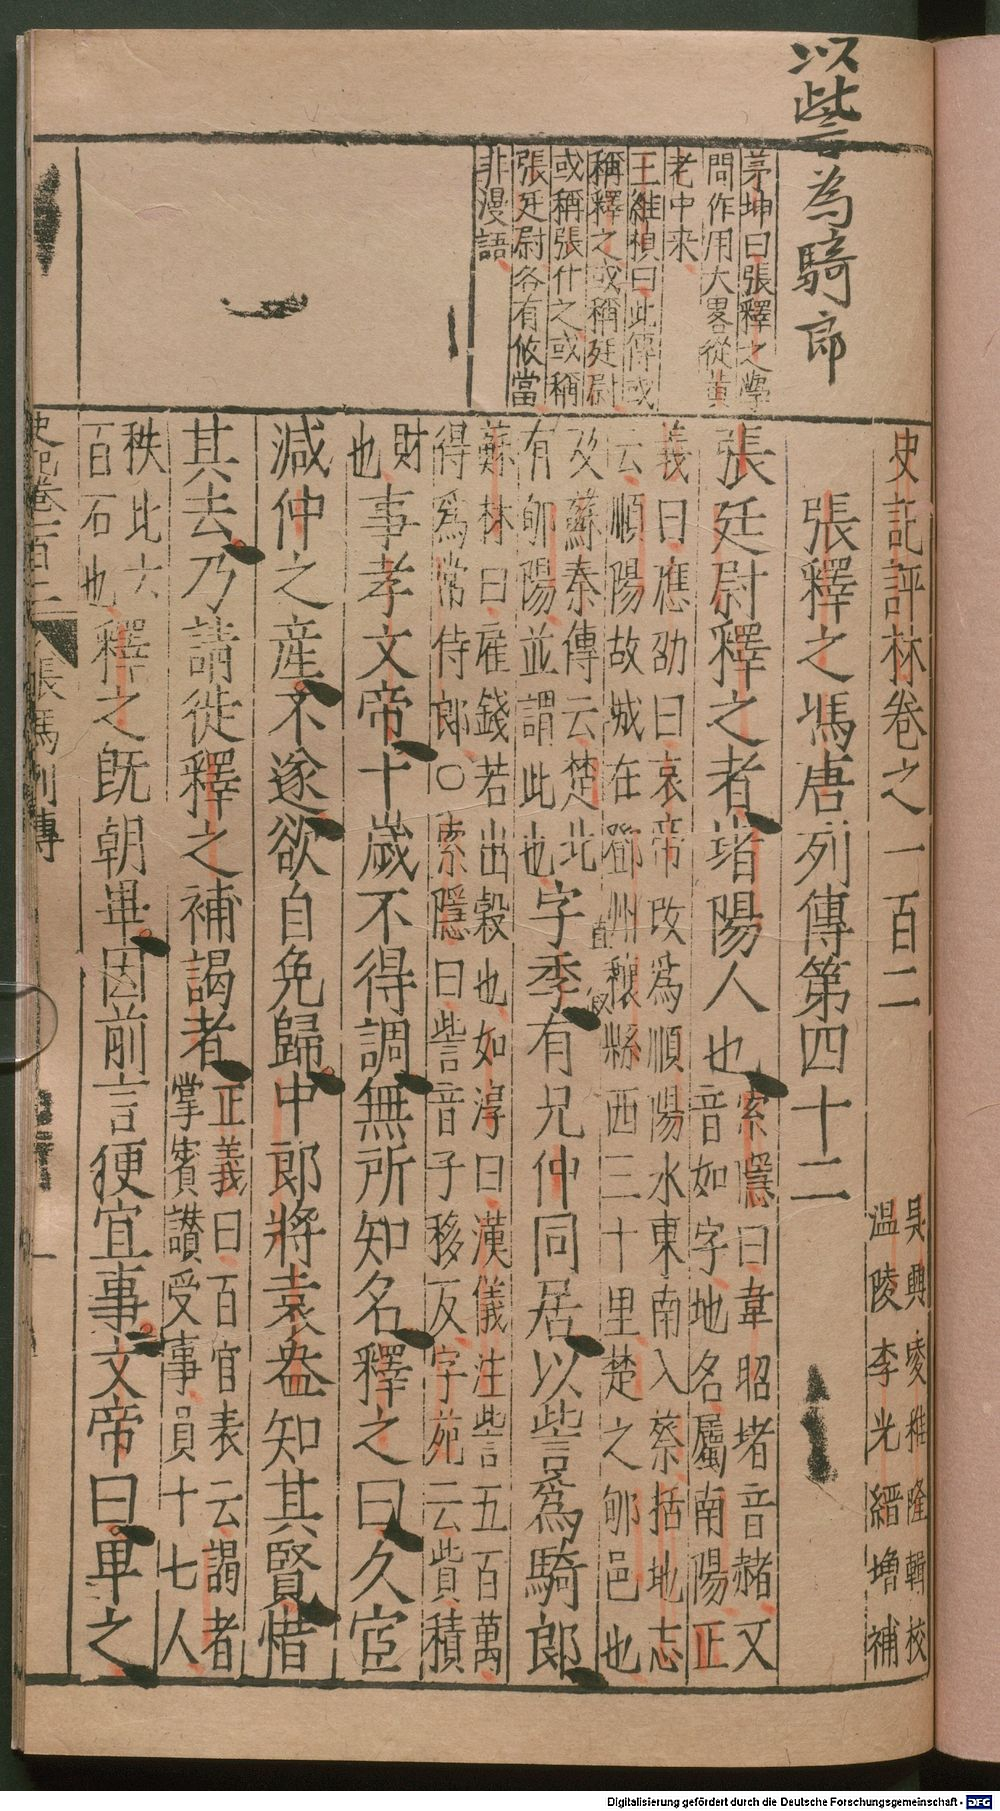 以訾為騎郎
茅坤曰張釋之學
問作用大畧從黄
老中来
王維楨曰此傳或
稱釋之或稱廷尉
或稱張什之或稱
張廷尉各有攸當
非漫語
史記評林卷之一百二
吳興凌稚隆輯校
温陵李光縉増補
張釋之馮唐列傳第四十二
張廷尉釋之者堵陽人也
索隱曰韋昭堵音赭又
音如字地名屬南陽正
義曰應劭曰哀帝改為順陽水東南入蔡括地志
云順陽故城在鄧州穰縣西三十里楚之郇邑也
及蘇秦傳云楚北
有郇陽並謂此也
字季有兄仲同居以訾爲騎郎
蘇林曰雇錢若出穀也如淳曰漢儀注訾五百萬
得爲常侍郎○索隱曰訾音子移反字苑云貲積
財
也
事孝文帝十歲不得調無所知名釋之曰久宦
減仲之産不遂欲自免歸中郎將袁盎知其賢惜
其去乃請徙釋之補謁者
正義曰百官表云謁者
掌賓讃受事員十七人
秩比六
百石也
釋之既朝畢因前言便宜事文帝曰卑之
史記卷一百二
張馮列傳
一
Digitalisierung gefördert durch die Deutsche Forschungsgemeinschaft - DFG